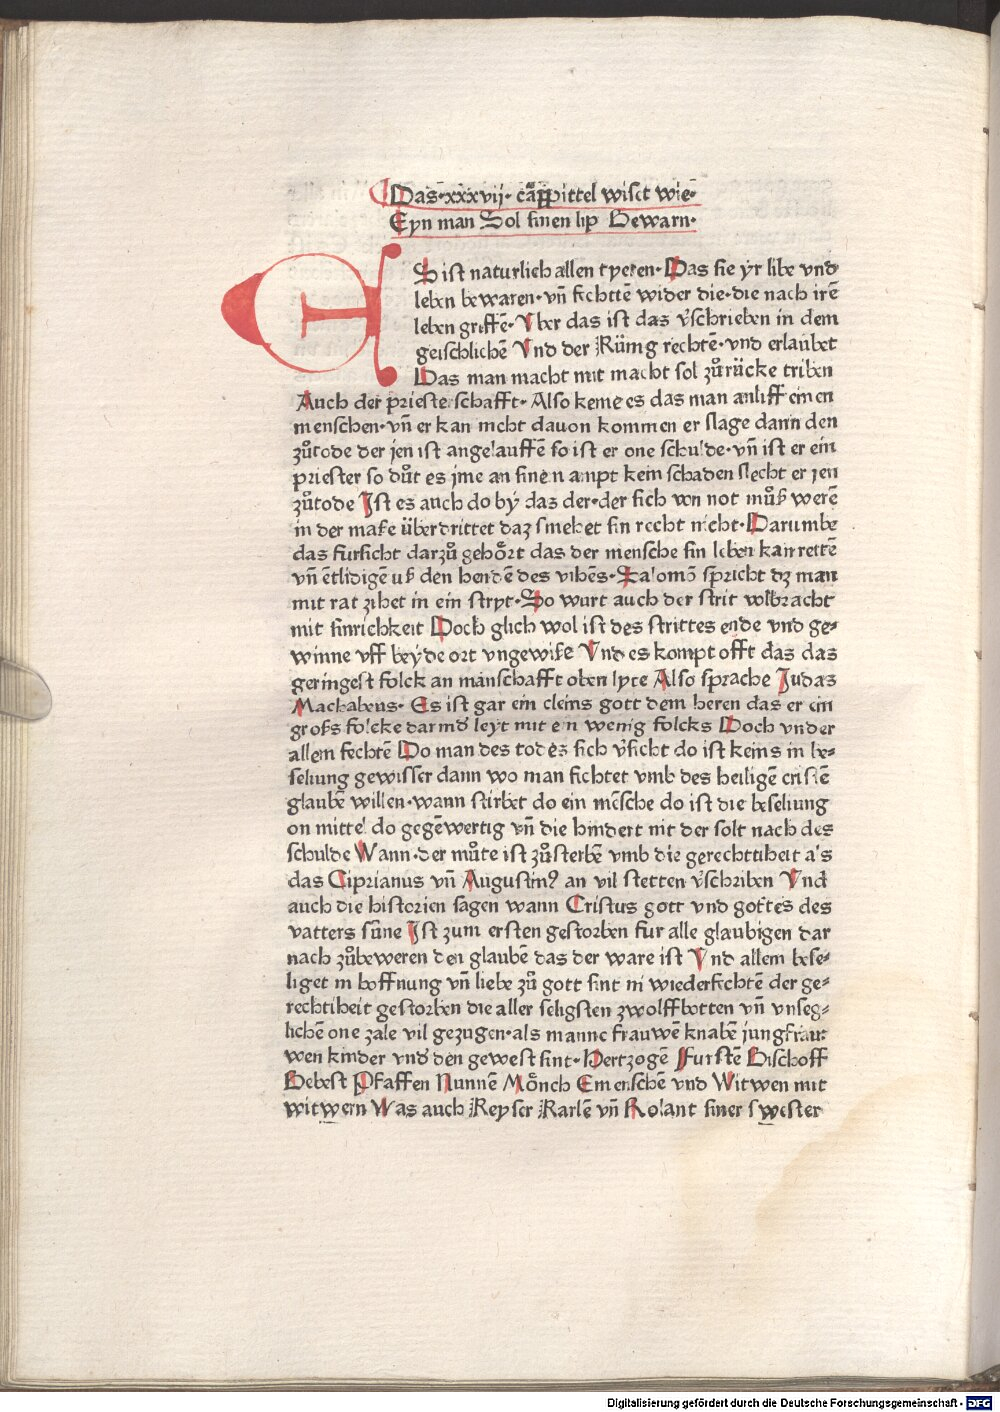 Das·xxxvij· cappittel wiset wie·
Eyn man Sol sinen lip Bewarn·
ES ist naturlich allen tyeren· Das sie yr libe vnd
leben bewaren· vn̄ fechttē wider die· die nach irē
leben griffē· Vber das ist das v̄schrieben in dem
geischlichē Vnd der Rūnig rechtē· vnd erlaubet
Das man macht mit macht sol zuͦ rücke triben
Auch der priesterschafft· Also keme es das man anliff einen
menschen· vn̄ er kan nicht dauon kommen er slage dann den
zuͦtode der jen ist angelauffē so ist er one schulde· vn̄ ist er ein
priester so duͦt es jme an sinen ampt kein schaden slecht er jen
zuͦtode Ist es auch do by das der· der sich von not muͦß werē
in der maße überdrittet daz smehet sin recht nicht· Darumbe
das fursicht darzuͦ gehoͤrt das der mensche sin leben kan rettē
vn̄ ētlidigē uß den hendē des vihēs· Salomō spricht dz man
mit rat zihet in ein stryt· So wurt auch der strit volbracht
mit sinrichkeit Doch glich wol ist des strittes ende vnd ge⸗
winne vff beyde ort vngewiße Vnd es kompt offt das das
geringest folck an manschafft oben lyte Also sprache Judas
Machabeus· Es ist gar ein cleins gott dem heren das er ein
groß folcke darnid leyt mit ein wenig folcks Doch vnder
allem fechtē Do man des todes sich v̄sicht do ist keins in be⸗
seliung gewisser dann wo man fichtet vmb des heiligē cristē
glaubē willen· wann stirbet do ein mēsche do ist die beseliung
on mittel do gegēwertig vn̄ die hindert nit der solt nach des
schulde Wann· der muͦte ist zuͦsterbē vmb die gerechttiheit als
das Ciprianus vn̄ Augustinꝰ an vil stetten v̄schriben Vnd
auch die historien sagen wann Cristus gott vnd gottes des
vatters sune Ist zum ersten gestorben fur alle glaubigen dar
nach zuͦbeweren den glaubē das der ware ist Vnd allem bese⸗
liget in hoffnung vn̄ liebe zuͦ gott sint in wiederfechtē der ge⸗
rechtiheit gestorben die aller seligsten zwolffbotten vn̄ vnseg⸗
lichē one zale vil gezugen· als manne frauwē knabē jungfrau
wen kinder vnd den gewest sint· Hertzogē Furstē Bischoff
Bebest Pfaffen Nunnē Moͤnch Emenschē vnd Witwen mit
witwern Was auch Keyser Karlē vn̄ Rolant siner swester
Digitalisierung gefördert durch die Deutsche Forschungsgemeinschaft - DFG